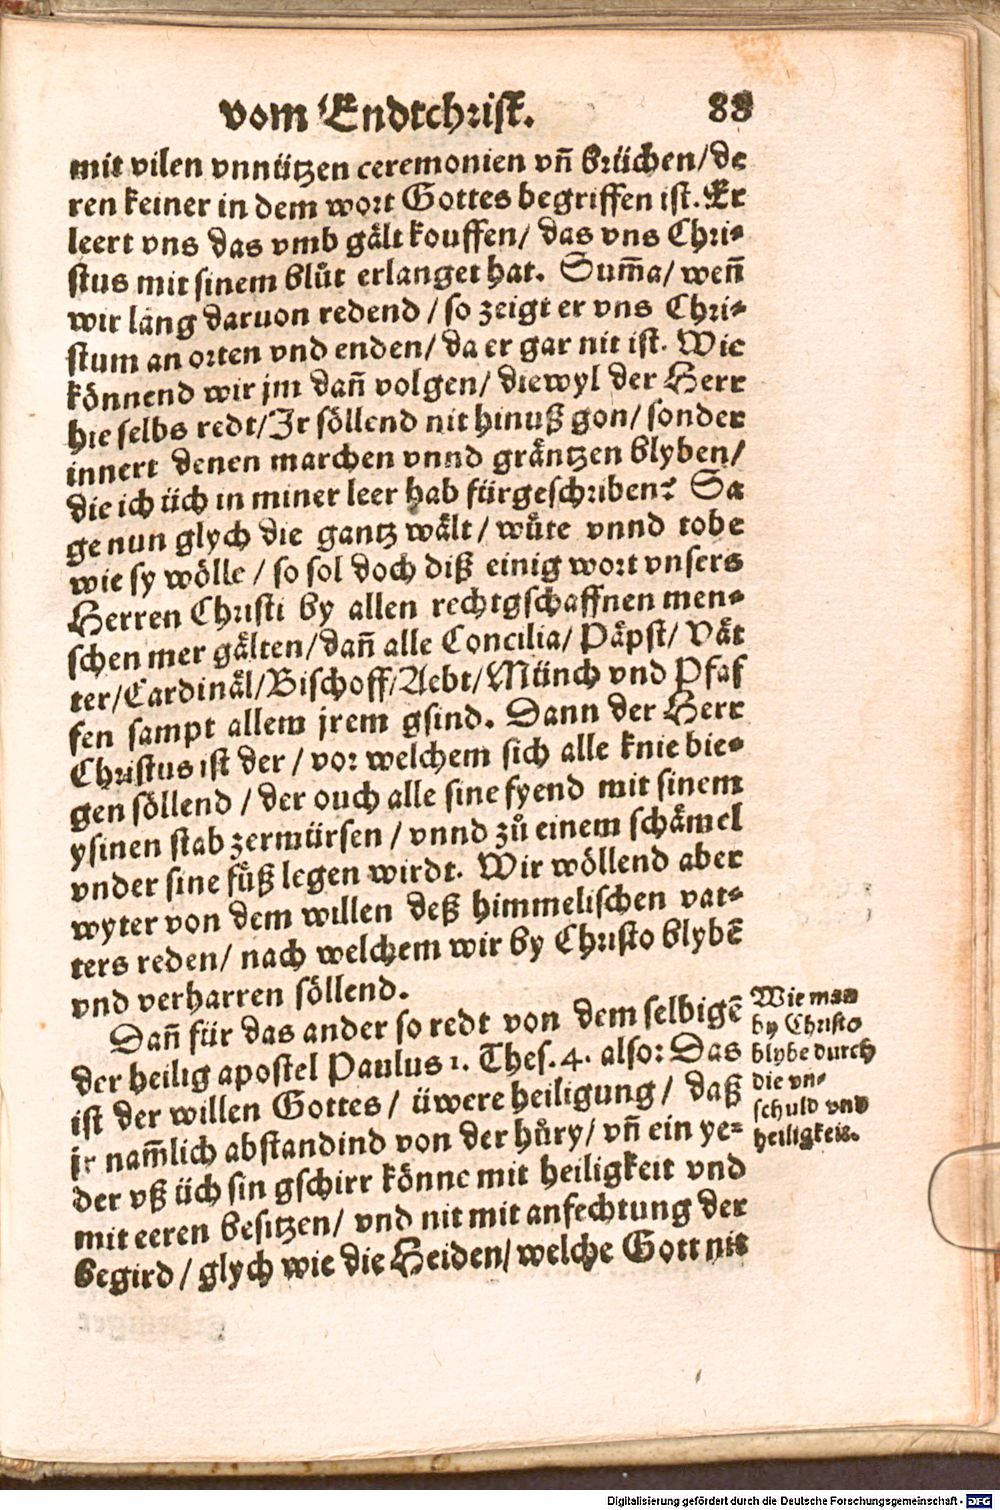 vom Endtchrist. 88
mit vilen vnnützen ceremonien vñ brüchen/de
ren keiner in dem wort Gottes begriffen ist. Er
leert vns das vmb gält kouffen/ das vns Chri-
stus mit sinem blůt erlanget hat. Sum̃a/ weñ
wir lang daruon redend / so zeigt er vns Chri-
stum an orten vnd enden/ da er gar nit ist. Wie
könnend wir jm dañ volgen/ diewyl der Herr
hie selbs redt/Jr söllend nit hinuß gon/ sonder
innert denen marchen vnnd gräntzen blyben/
die ich üch in miner leer hab fürgeschriben? Sa
ge nun glych die gantz wält / wůte vnnd tobe
wie sy wölle / so sol doch diß einig wort vnsers
Herren Christi by allen rechtgschaffnen men-
schen mer gälten/dañ alle Concilia/ Päpst/ Vät
ter/Cardinäl/Bischoff/Aebt/Münch vnd Pfaf
fen sampt allem jrem gsind. Dann der Herr
Christus ist der / vor welchem sich alle knie bie-
gen söllend / der ouch alle sine fyend mit sinem
ysinen stab zermürsen / vnnd zů einem schämel
vnder sine fůß legen wirdt. Wir wöllend aber
wyter von dem willen deß himmelischen vat-
ters reden/ nach welchem wir by Christo blybē
vnd verharren söllend.
Dañ für das ander so redt von dem selbigē
der heilig apostel Paulus 1. Thes. 4. also: Das
ist der willen Gottes / üwere heiligung / daß
jr nam̃lich abstandind von der hůry/ vñ ein ye-
der vß üch sin gschirr könne mit heiligkeit vnd
mit eeren besitzen/ vnd nit mit anfechtung der
begird / glych wie die Heiden/ welche Gott nit
Wie man
by Christo
blybe durch
die vn-
schuld vnd
heiligkeit.
Digitalisierung gefördert durch die Deutsche Forschungsgemeinschaft - DFG